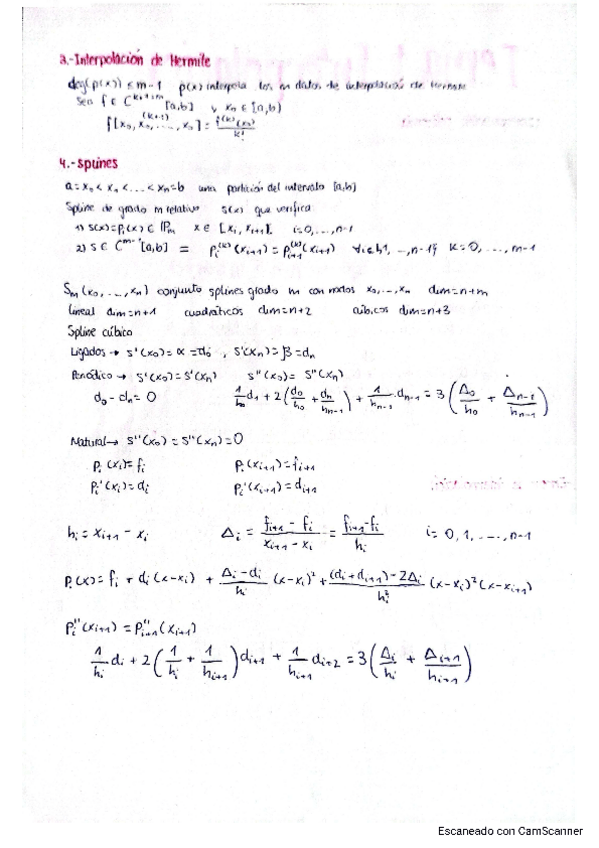 3.-Interpolación de Hermite
deg(p(x)) ≤ m-1 p(x) interpola los m datos de interpolación de Hermite
Sea f ∈ [a,b] y x₀ ∈ [a,b]
f[x₀, x₀, ..., x₀] = f^(k)(x₀)/k!
(k+1)
4.-Splines
a = x₀ < x₁ < ... < xₙ = b una partición del intervalo [a,b]
Spline de grado m relativo s(x) que verifica
1) s(x) = Pᵢ(x) ∈ ℙₘ x ∈ [xᵢ, xᵢ₊₁]. i=0,...,n-1
2) s ∈ C^(m-1)[a,b] = pᵢ^(k)(xᵢ₊₁) = pᵢ₊₁^(k)(xᵢ₊₁) k=0,...,m-1
Sₘ(x₀,...,xₙ) conjunto splines grado m con nodos x₀,...,xₙ dim=n+m
lineal dim=n+1 cuadráticos dim=n+2 cúbicos dim=n+3
Spline cúbico
Ligados → s'(x₀) = α = d₀, s'(xₙ) = β = dₙ
Periódico → s'(x₀) = s'(xₙ) s''(x₀) = s''(xₙ)
d₀ - dₙ = 0 1/h₀ d₁ + 2(d₀/h₀ + dₙ/hₙ₋₁) + 1/hₙ₋₁ dₙ₋₁ = 3(Δ₀/h₀ + Δₙ₋₁/hₙ₋₁)
Natural → s''(x₀) = s''(xₙ) = 0
Pᵢ(xᵢ) = fᵢ Pᵢ(xᵢ₊₁) = fᵢ₊₁
Pᵢ'(xᵢ) = dᵢ Pᵢ'(xᵢ₊₁) = dᵢ₊₁
hᵢ = xᵢ₊₁ - xᵢ Δᵢ = (fᵢ₊₁ - fᵢ)/(xᵢ₊₁ - xᵢ) = (fᵢ₊₁ - fᵢ)/hᵢ i = 0, 1, ..., n-1
Pᵢ(x) = fᵢ + dᵢ(x-xᵢ) + (Δᵢ - dᵢ)/hᵢ (x-xᵢ)² + ((dᵢ + dᵢ₊₁) - 2Δᵢ)/hᵢ² (x-xᵢ)²(x-xᵢ₊₁)
Pᵢ''(xᵢ₊₁) = Pᵢ₊₁''(xᵢ₊₁)
1/hᵢ dᵢ + 2(1/hᵢ + 1/hᵢ₊₁)dᵢ₊₁ + 1/hᵢ₊₁ dᵢ₊₂ = 3(Δᵢ/hᵢ + Δᵢ₊₁/hᵢ₊₁)
Escaneado con CamScanner